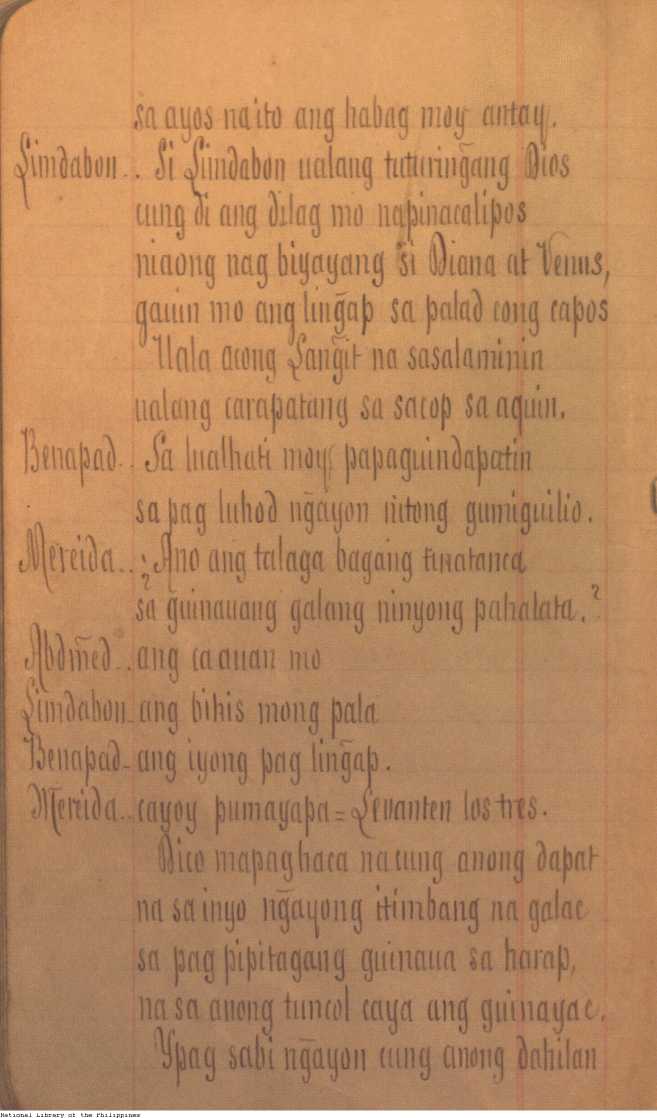 sa ayos na ito ang habag moy antay.
Limdabon.. Si Limdabon ualang tuturing̃ang Dios
cung di ang dilag mo napinacalipos
niaong nag biyayang si Diana at Venus,
gauin mo ang ling̃ap sa palad cong capos
Uala acong Lang̃it na sasalaminin
ualang carapatang sa sacop sa aquin.
Benapad.. Sa lualhati moy papaguindapatin
sa pag luhod ng̃ayon nitong gumiguilio.
Mereida..¿Ano ang talaga bagang tinatanca
sa guinauang galang ninyong pahalata.?
Abdmed.. ang caauan mo
Limdabon_ ang bihis mong pala
Benapad_ ang iyong pag ling̃ap.
Mereida.. cayoy pumayapa=Levanten los tres.
Dico mapaghaca na cung anong dapat
na sa inyo ng̃ayong itimbang na galac
sa pag pipitagang guinaua sa harap,
na sa anong tuncol caya ang guinayac.
Ypag sabi ng̃ayon cung anong dahilan
National Library of the Philippines